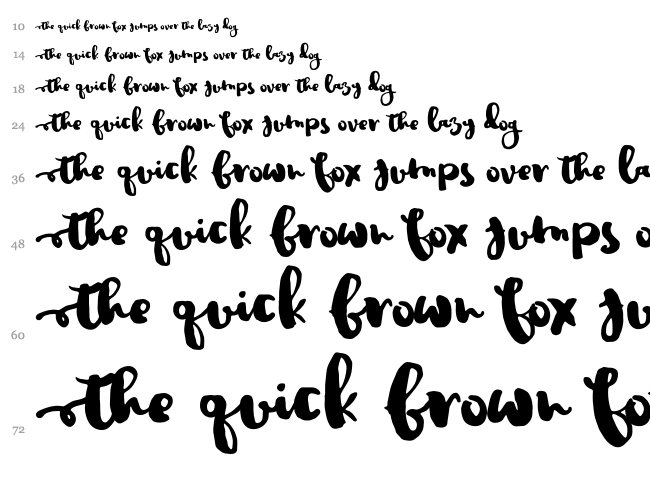 10 the quick brown fox jumps over the lazy dog
14 the quick brown fox jumps over the lazy dog
18 the quick brown fox jumps over the lazy dog
24 the quick brown fox jumps over the lazy dog
36 the quick brown fox jumps over the la
48 the quick brown fox jumps o
60 the quick brown fox ju
72 the quick brown fo